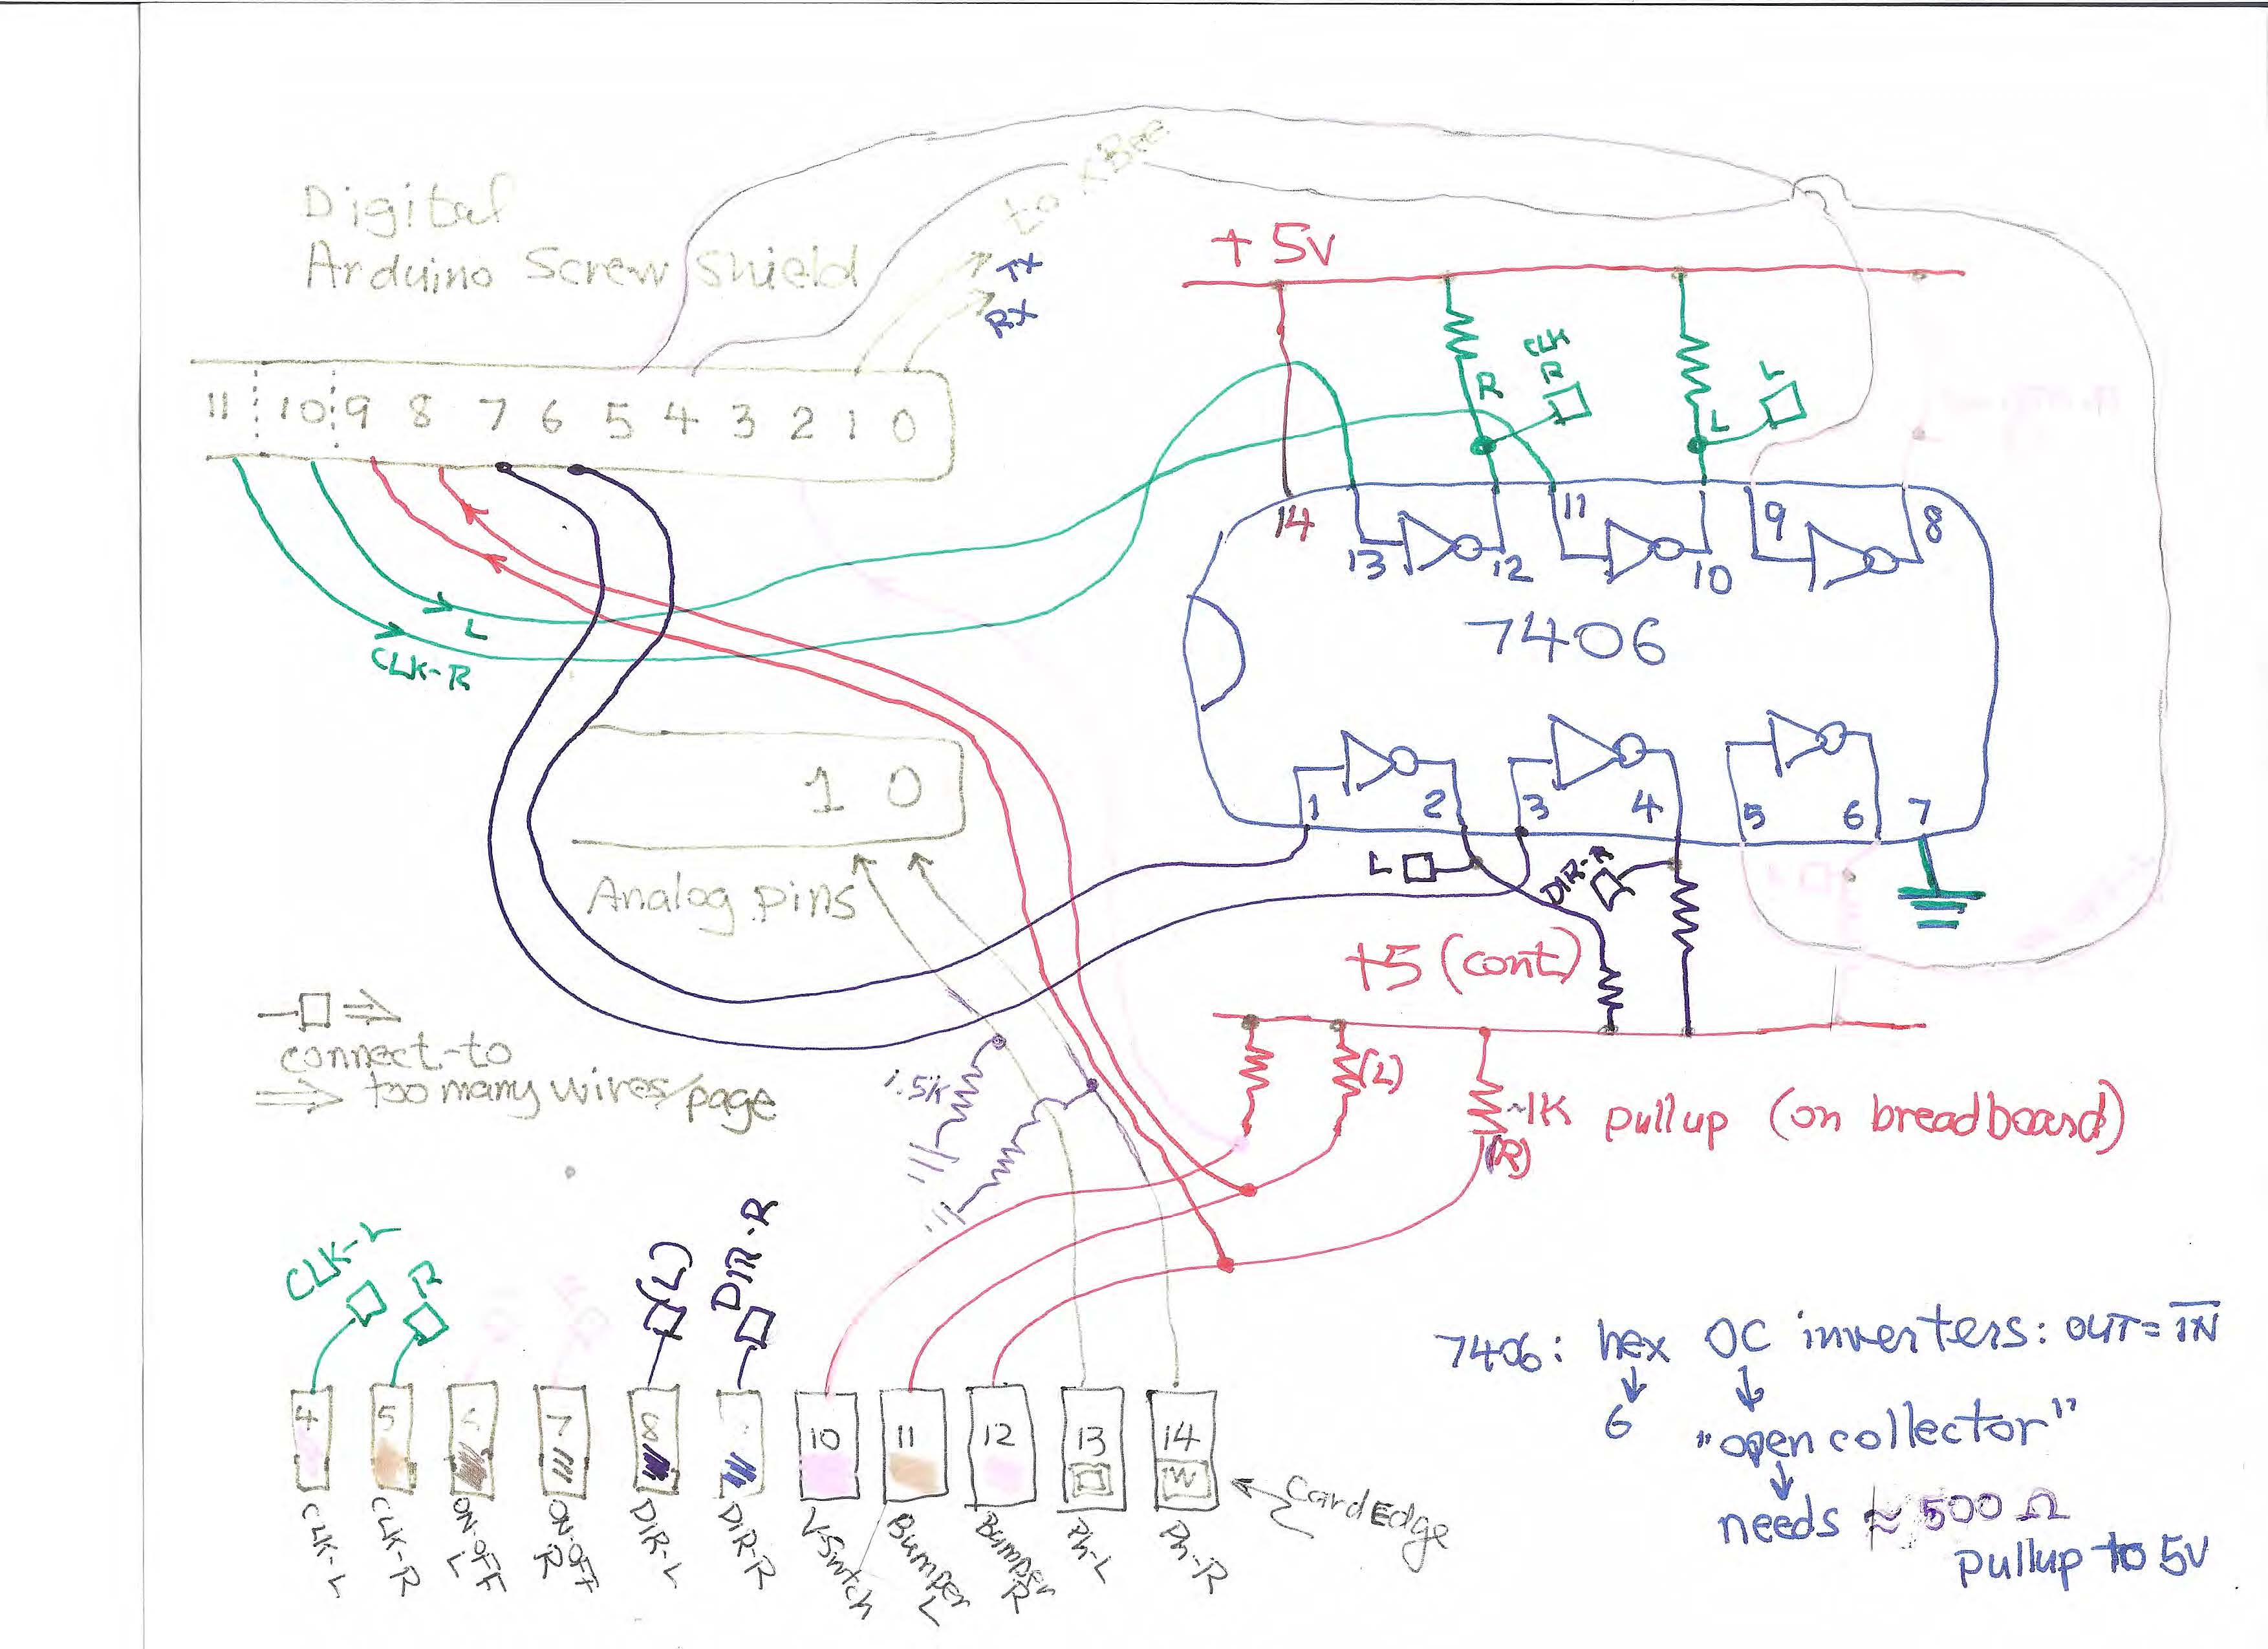 Digital
Arduino Screw Shield
to XBee
TX
RX
11 10 9 8 7 6 5 4 3 2 1 0
L
CLK-R
+5V
R
CLK
R
L
L
14
13
12
11
10
9
8
7406
1
2
3
4
5
6
7
L
DIR-R
1 0
Analog pins
+5 (cont)
(L)
~1K pullup (on breadboard)
(R)
1.5K
connect-to
too many wires/page
CLK-L
R
(L)
DIR-R
4
5
7
8
10
11
12
13
14
W
CLK-L
CLK-R
ON-OFF
L
ON-OFF
R
DIR-L
DIR-R
Bumper
L
Bumper
R
Ph-L
Ph-R
Card Edge
7406: hex OC inverters: OUT = I̅N̅
6
"open collector"
needs ≈ 500 Ω
pullup to 5V